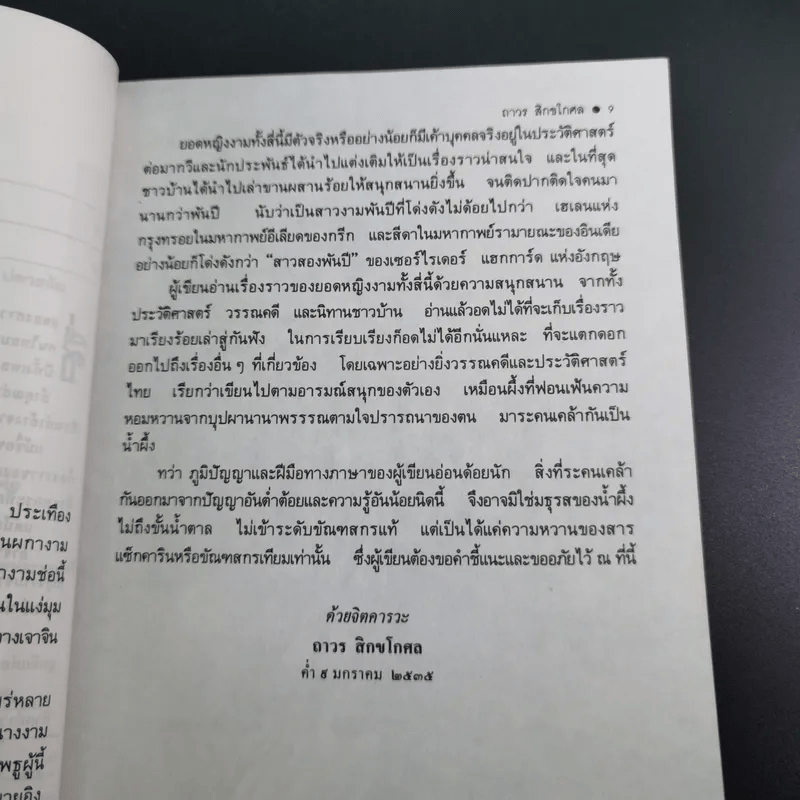 ถาวร สิกขโกศล ● ๑
ยอดหญิงงามทั้งสี่นี้มีตัวจริงหรืออย่างน้อยก็มีเค้าบุคคลจริงอยู่ในประวัติศาสตร์
ต่อมากวีและนักประพันธ์ได้นำไปแต่งเติมให้เป็นเรื่องราวน่าสนใจ และในที่สุด
ชาวบ้านได้นำไปเล่าขานผสานร้อยให้สนุกสนานยิ่งขึ้น จนติดปากติดใจคนมา
นานกว่าพันปี นับว่าเป็นสาวงามพันปีที่โด่งดังไม่ด้อยไปกว่า เฮเลนแห่ง
กรุงทรอยในมหากาพย์อีเลียดของกรีก และสีดาในมหากาพย์รามายณะของอินเดีย
อย่างน้อยก็โด่งดังกว่า “สาวสองพันปี” ของเซอร์ไรเดอร์ แฮกการ์ด แห่งอังกฤษ
ผู้เขียนอ่านเรื่องราวของยอดหญิงงามทั้งสี่นี้ด้วยความสนุกสนาน จากทั้ง
ประวัติศาสตร์ วรรณคดี และนิทานชาวบ้าน อ่านแล้วอดไม่ได้ที่จะเก็บเรื่องราว
มาเรียงร้อยเล่าสู่กันฟัง ในการเรียบเรียงก็อดไม่ได้อีกนั่นแหละ ที่จะแตกดอก
ออกไปถึงเรื่องอื่น ๆ ที่เกี่ยวข้อง โดยเฉพาะอย่างยิ่งวรรณคดีและประวัติศาสตร์
ไทย เรียกว่าเขียนไปตามอารมณ์สนุกของตัวเอง เหมือนผึ้งที่ฟอนเฟ้นความ
หอมหวานจากบุปผานานาพรรรณตามใจปรารถนาของตน มาระคนเคล้ากันเป็น
น้ำผึ้ง
ทว่า ภูมิปัญญาและฝีมือทางภาษาของผู้เขียนอ่อนด้อยนัก สิ่งที่ระคนเคล้า
กันออกมาจากปัญญาอันต่ำต้อยและความรู้อันน้อยนิดนี้ จึงอาจมิใช่มธุรสของน้ำผึ้ง
ไม่ถึงขั้นน้ำตาล ไม่เข้าระดับขัณฑสกรแท้ แต่เป็นได้แค่ความหวานของสาร
แซ็กคารินหรือขัณฑสกรเทียมเท่านั้น ซึ่งผู้เขียนต้องขอคำชี้แนะและขออภัยไว้ ณ ที่นี้
ด้วยจิตคารวะ
ถาวร สิกขโกศล
ค่ำ ๕ มกราคม ๒๕๓๕
ประเทือง
นผกางาม
างามช่อนี้
นในแง่มุม
ทางเจาจิน
พร่หลาย
นางงาม
พธูผู้นี้